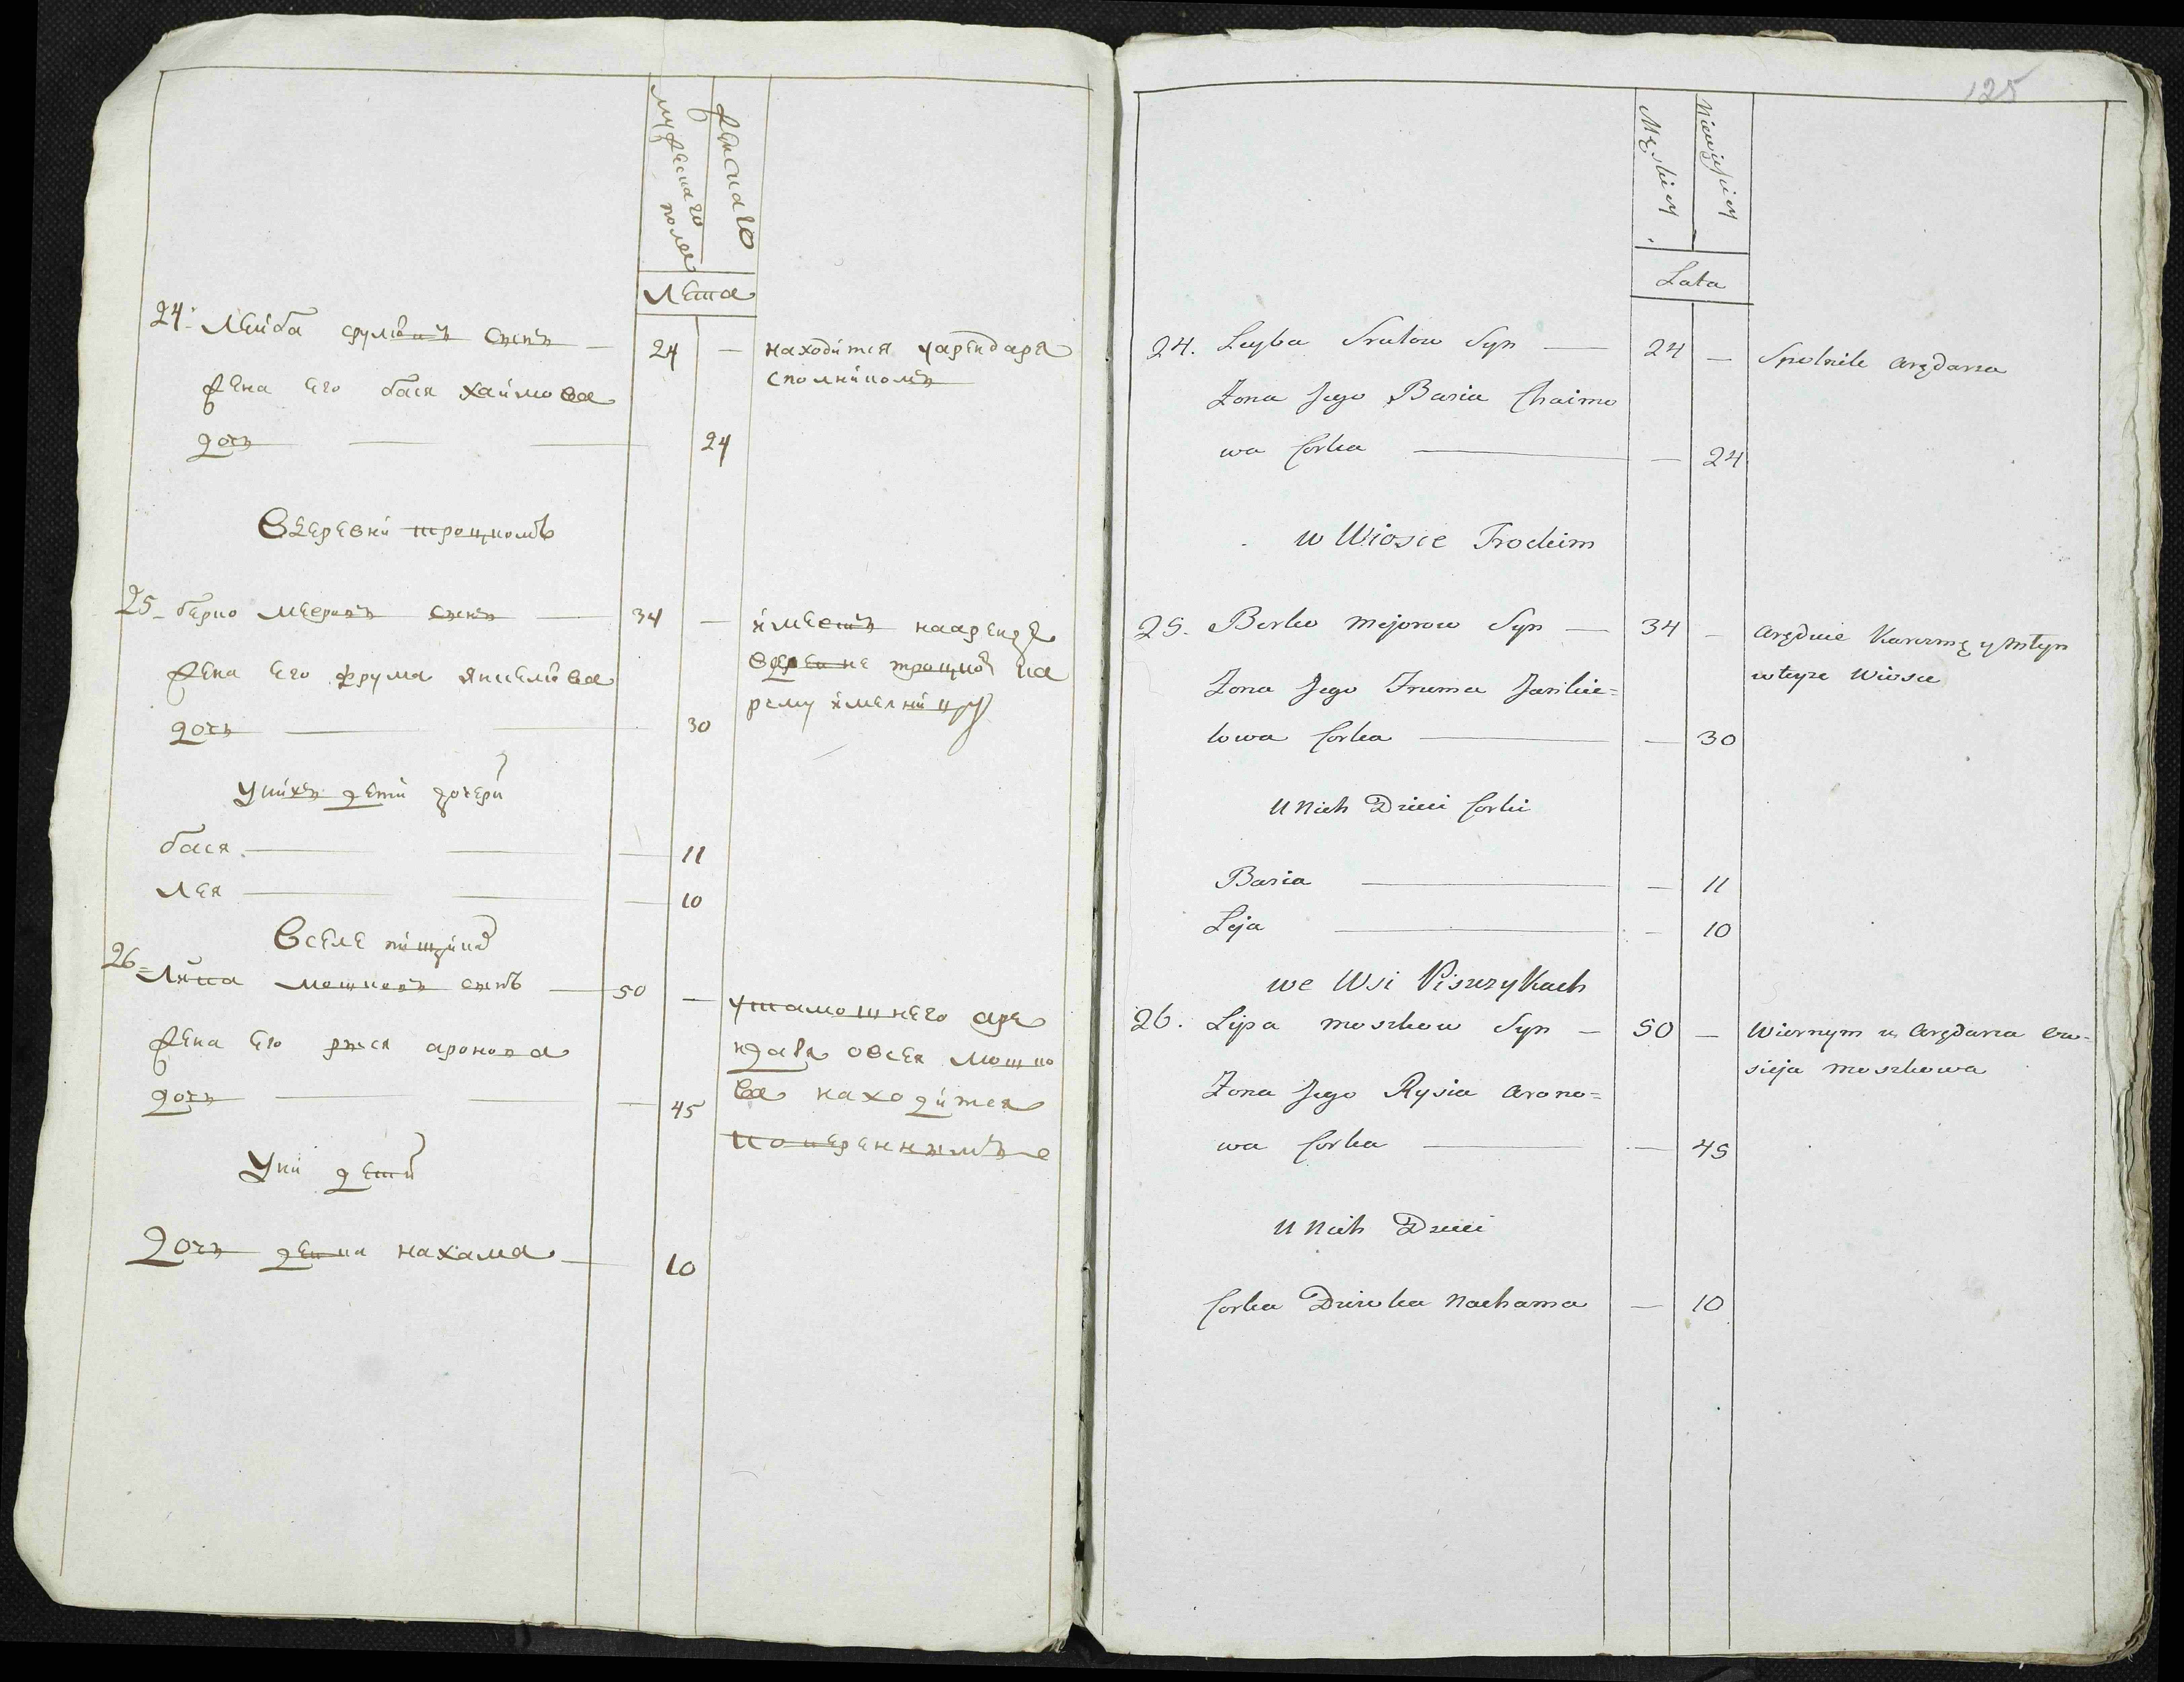 мужескаго
полу
женскаго
лета
24. Лейба сруливъ сынъ — 24 — находится уарендаря
сполникомъ
жена его бася хаимова
дочь — 24
Вдеревни троцкомъ
25 берко мееровъ сынъ — 34 — имеетъ наарендѣ
жена его фрума янкелïова
дочь — 30
уних дети дочери
бася — 11
лея — 10
Вселе
26 Липа мошковъ сынъ — 50 — утамошнего аре
ндаря овсея мошко
ва находится
жена его рыся аронова
дочь — 45
Уни дети
Дочь девка нахама — 10
125
Męskiey
Niewieściey
Lata
24. Leyba Srulow Syn — 24 — Spolnik Arędarza
Zona Jego Basia Chaimo
wa Corka — 24
w Wiosce Trockim
25. Berko Mejorow Syn — 34 — Aręduie Karczmę y Młyn
wteyze Wiosce
Zona Jego Fruma Jankie=
lowa Corka — 30
U Nich Dzieci Corki
Basia — 11
Leja — 10
we Wsi Piszczykach
26. Lipa Moszkow Syn — 50 — Wiernym u Arędarza Ow=
sieja Moszkowa
Zona Jego Rysia Arono=
wa Corka — 45
U Nich Dzieci
Corka Dziewka Nachama — 10